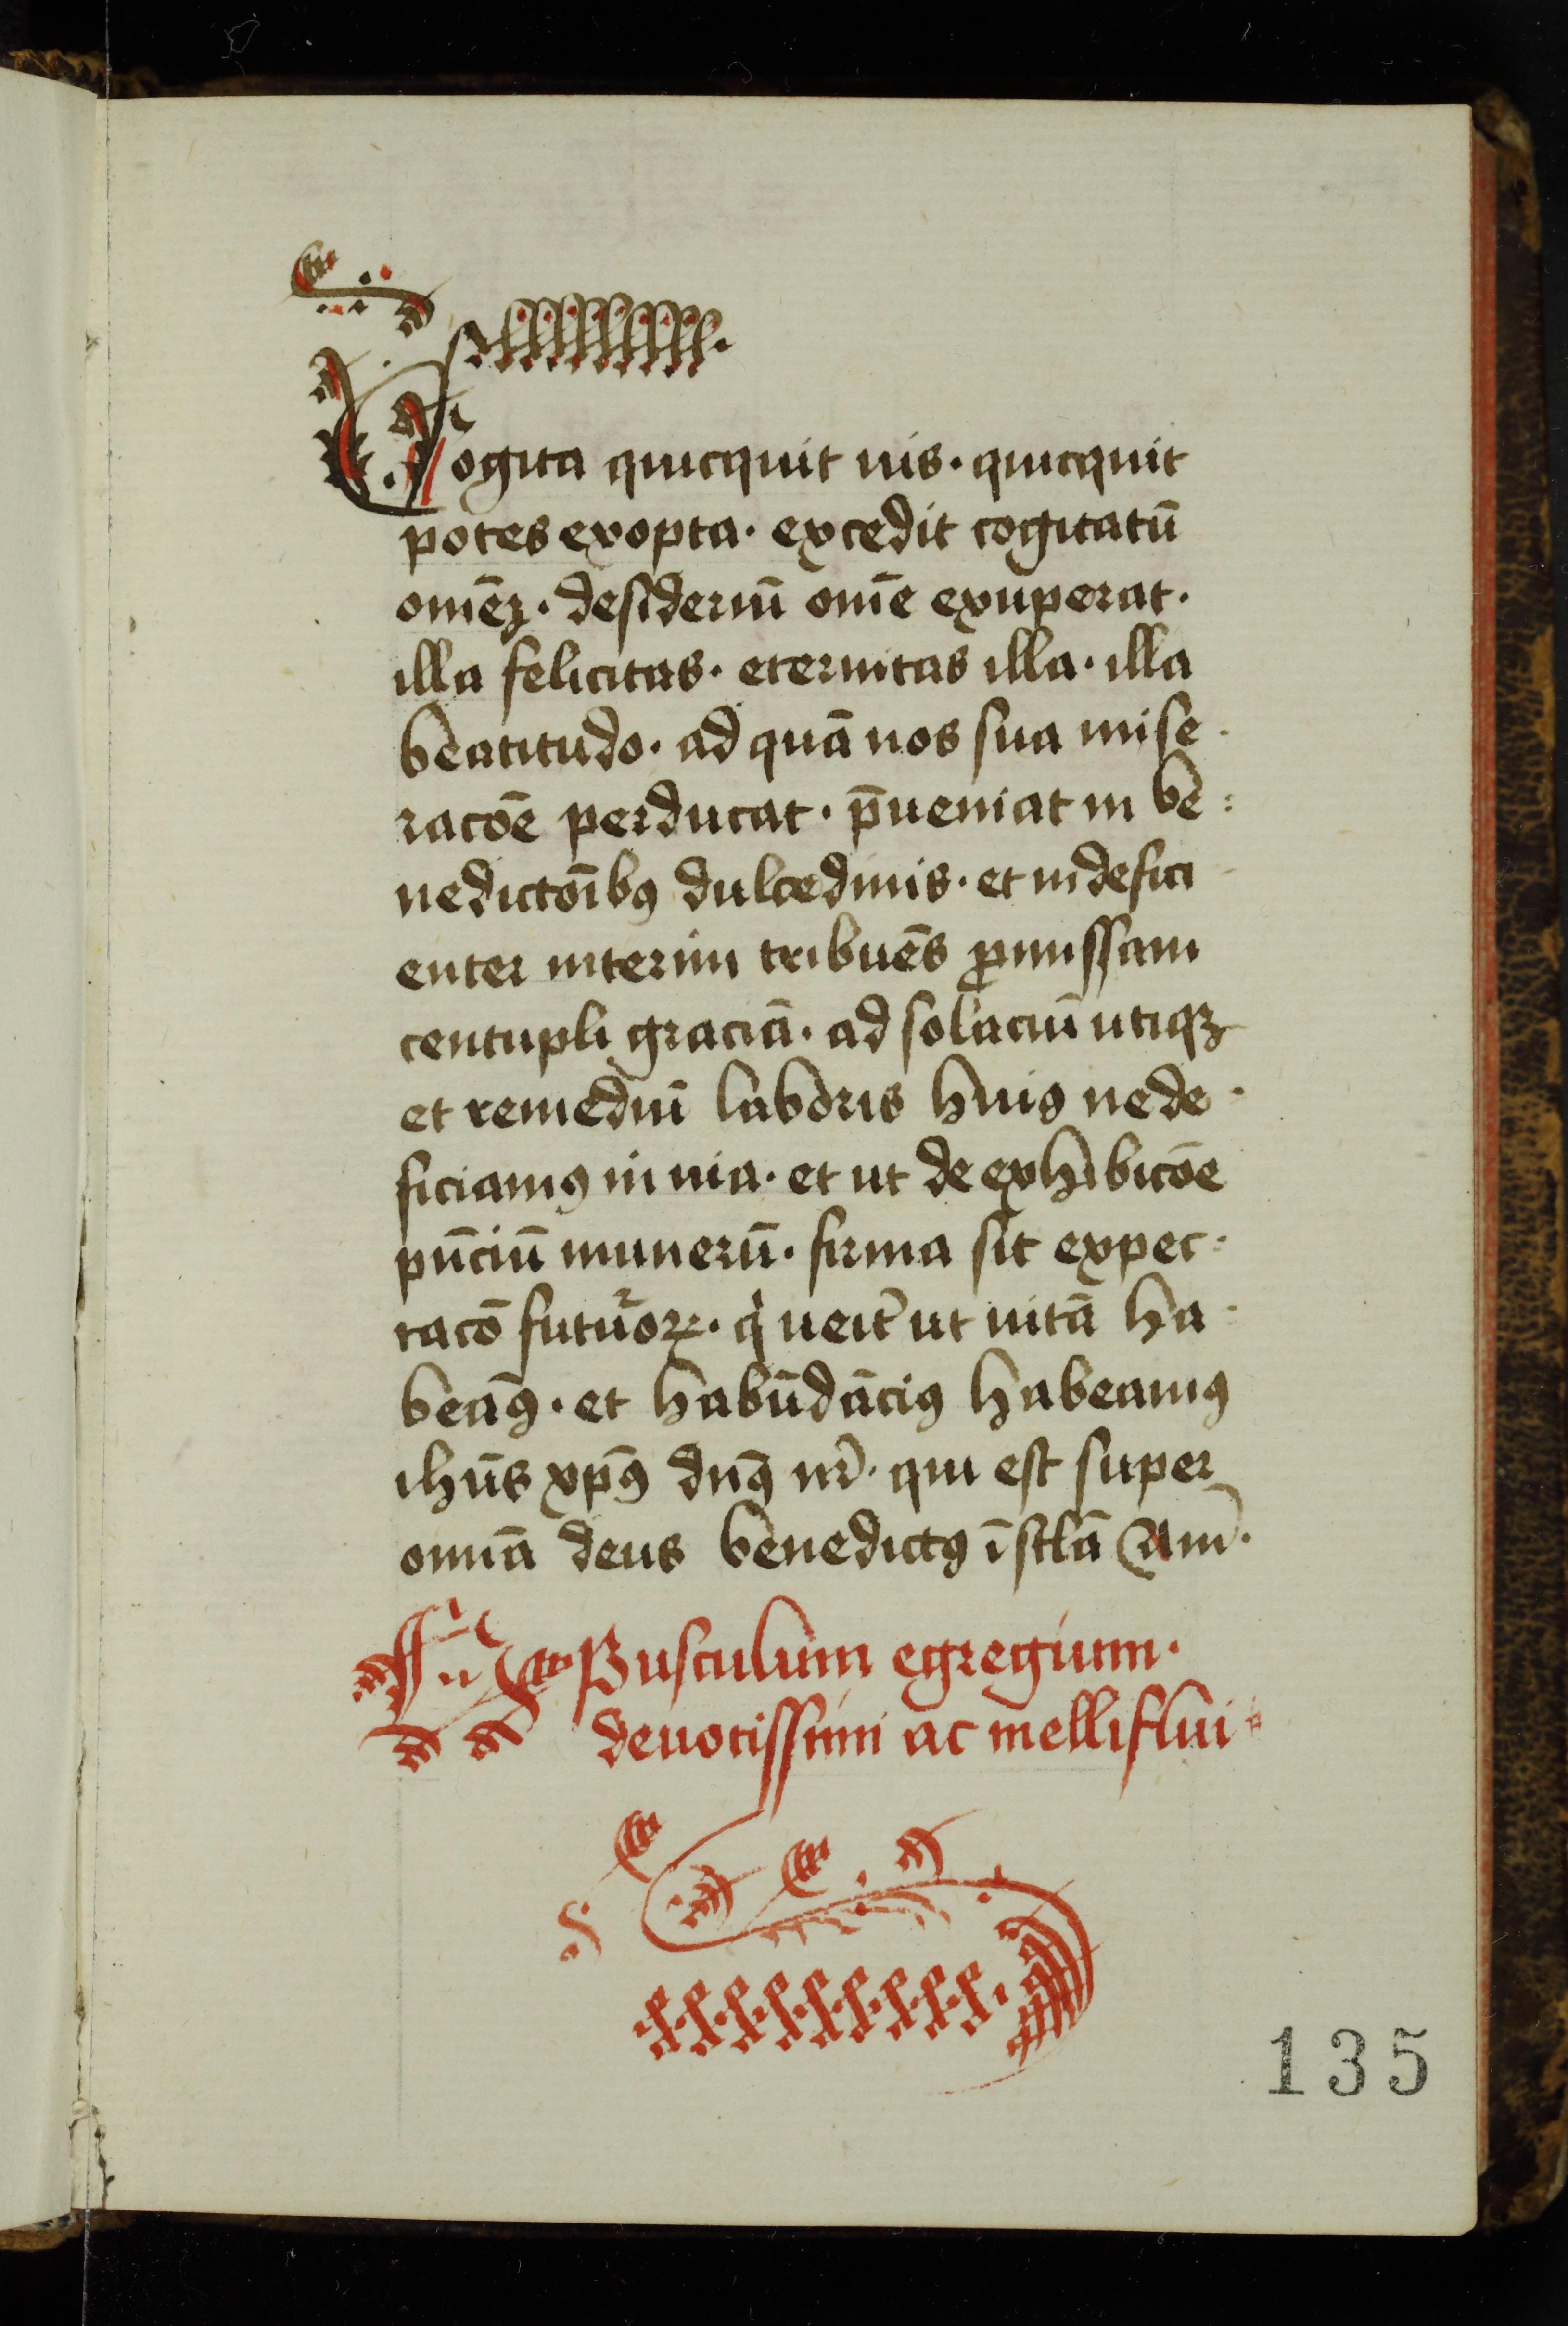 Cogita quicquit uis · quicquit
potes exopta · excedit cogitatū
om̄eʒ · desideriū om̄e exuperat ·
illa felicitas · eternitas illa · illa
beatitudo · ad quā nos sua mise
racōe perducat · p̄ueniat in be
nedictōībꝰ dulcedinis · et indefici
enter interim tribuēs ꝓmissam
centupli graciā · ad solaciū utiqꝫ
et remediū laboris huiꝰ ne de
ficiamꝰ in uia · et ut de exhibicōe
pn̄ciū munerū · firma sit expec
tacō futuroꝝ · q̇ ueīt ut uitā ha
beāꝰ · et habūdāciꝰ habeamꝰ
ihūs xp̄ꝰ dn̄ꝰ nr̄ · qui est super
omīa deus benedictꝰ ī sc̄lā Am̄ ·
Opusculum egregium ·
deuotissimi ac melliflui
135